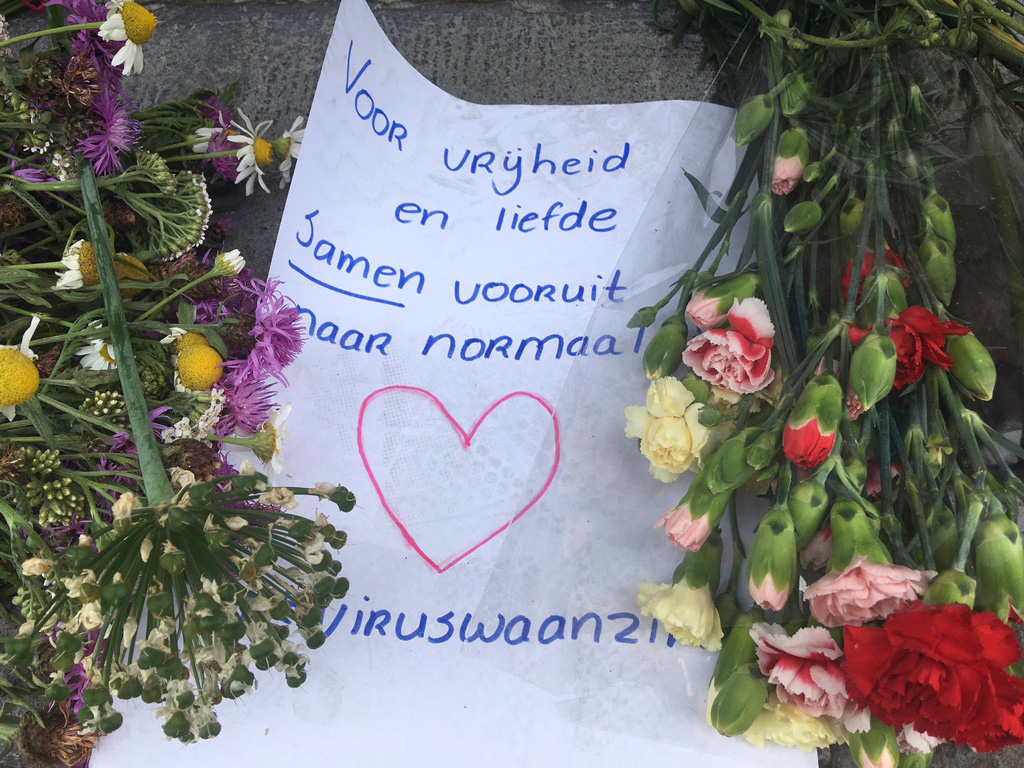 Voor vrijheid
en liefde
Samen vooruit
naar normaal
viruswaanzin